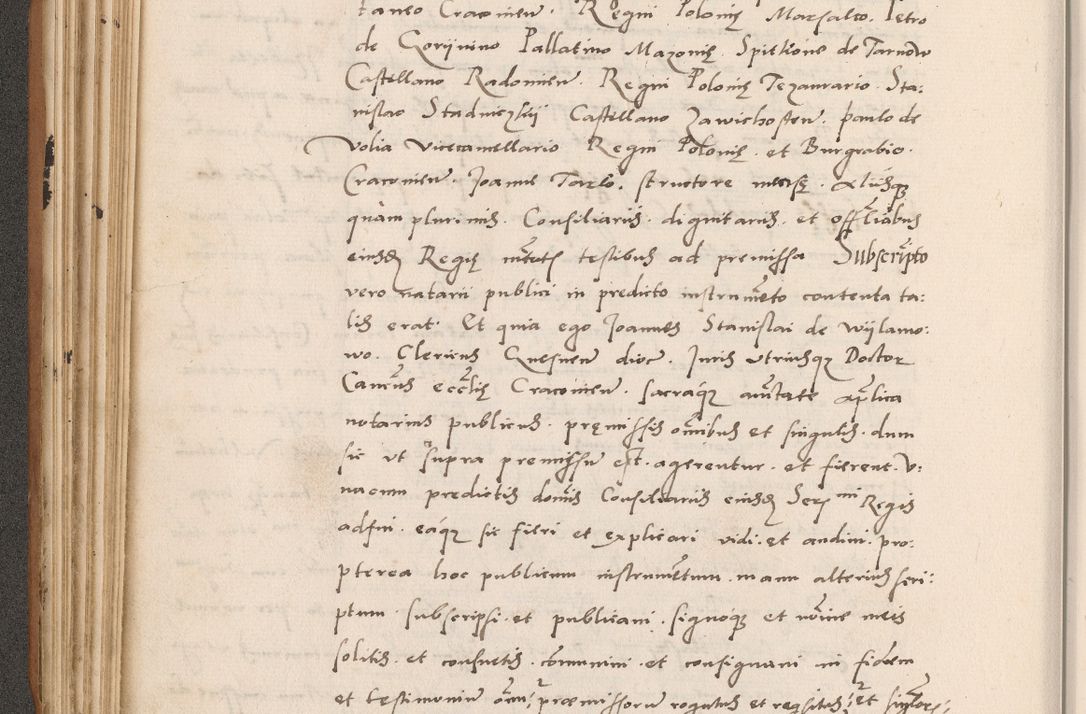 taneo Cracovien. Regni Polonię Marsalco. Petro
de Gorynino Pallatino Mazovię. Spitkone de Tarnow
Castellano Radomien. Regni Polonię Tezaurario. Sta:
nislao Stadniczkij Castellano Zawichosten. paulo de
Volia Vicecancellario Regni Polonię. et Burgrabio.
Cracovien. Joanne Tarlo. structore mensę. Aliisqꝫ
quam plurimis. Consiliariis. dignitariis. et offitialibus
eiusdem Regię mtatis testibus ad premissa Subscripto
vero natarii publici in predicto instrumēto contenta ta:
lis erat. Et quia ego Joannes Stanislai de Wijlamo:
wo. Clericus Gnesnen dioc. Juris utriusqꝫ Doctor
Canonicus ecclesię Cracovien. sacraqꝫ auctate aplica
notarius publicus. pręmissis omnibus et singulis. dum
sic ut supra premissum est. agerentur. et fierent. v:
nacum predictis dominis Consiliariis eiusdem Sermi Regis
adfui. eaqꝫ sic fieri et explicari vidi. et audivi. pro:
pterea hoc publicum instrumentum. manu alterius scri:
ptum. subscripsi. et publicavi. signoqꝫ et nomine meis
solitis. et consuetis. communivi. et consignavi in fidem
et testimonium omnium premissorum rogatus et requisitus. et